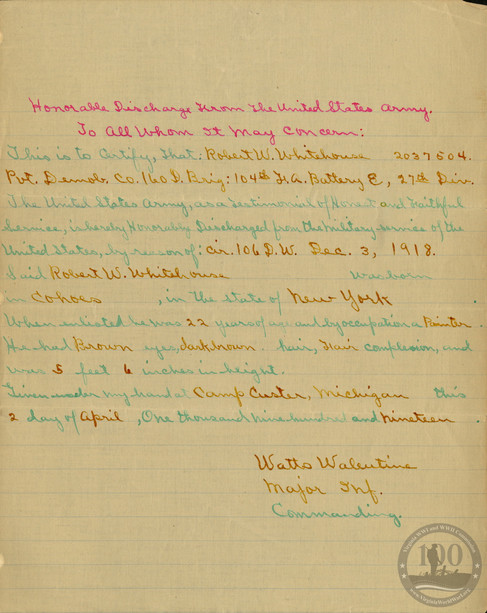 Honorable Discharge From The United States Army.
To All Whom It May Concern:
This is to Certify, That: Robert W. Whitehouse 2037504.
Pvt. Demob. Co. 160 D. Brig: 104th F.A. Battery E, 27th Div.
The United States Army, as a Testimonial of Honest and Faithful
Service, is hereby Honorably Discharged from the Military service of the
United States, by reason of: Cir. 106 D.W. Dec. 3, 1918.
Said Robert W. Whitehouse was born
in Cohoes , in the state of New York .
When enlisted he was 22 years of age and by occupation a Painter.
He had Brown eyes, dark brown hair, Fair complexion, and
was 5 feet 6 inches in height.
Given under my hand at Camp Custer, Michigan this
2 day of April , One thousand nine hundred and nineteen .
Watts Valentine
Major Inf.
Commanding.
100